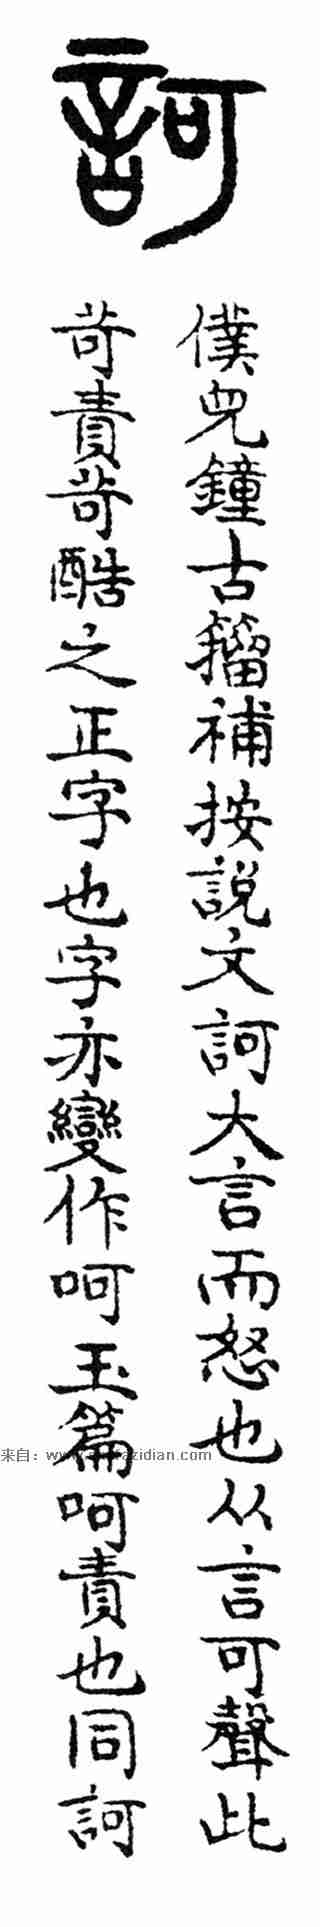 訶
僕兒鐘古籀補按說文訶大言而怒也从言可聲此
苛責苛酷之正字也字亦變作呵玉篇呵責也同訶
来自：www.